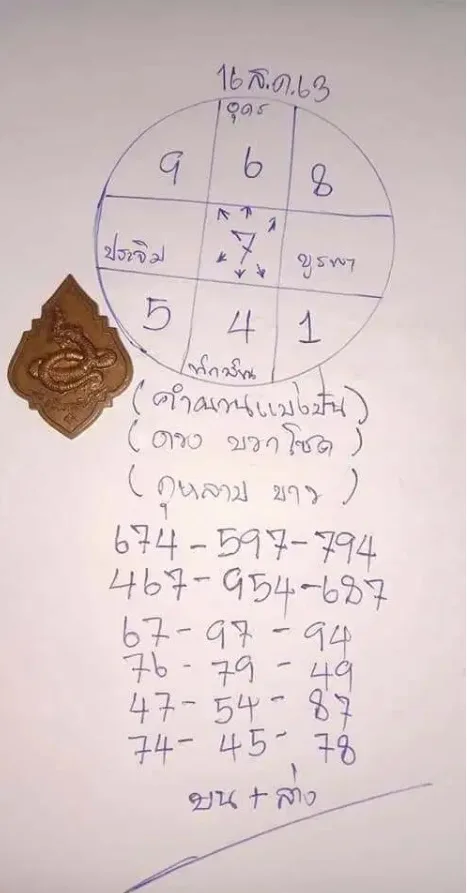 16 ส.ค.63
อุดร
9 6 8
ประจิม 7 บูรพา
5 4 1
ทักษิณ
(คำนวนแบ่งปัน)
(ดวง บวกโชค)
(กุหลาบ ขาว)
674-597-794
467-954-687
67-97-94
76-79-49
47-54-87
74-45-78
บน+ล่าง